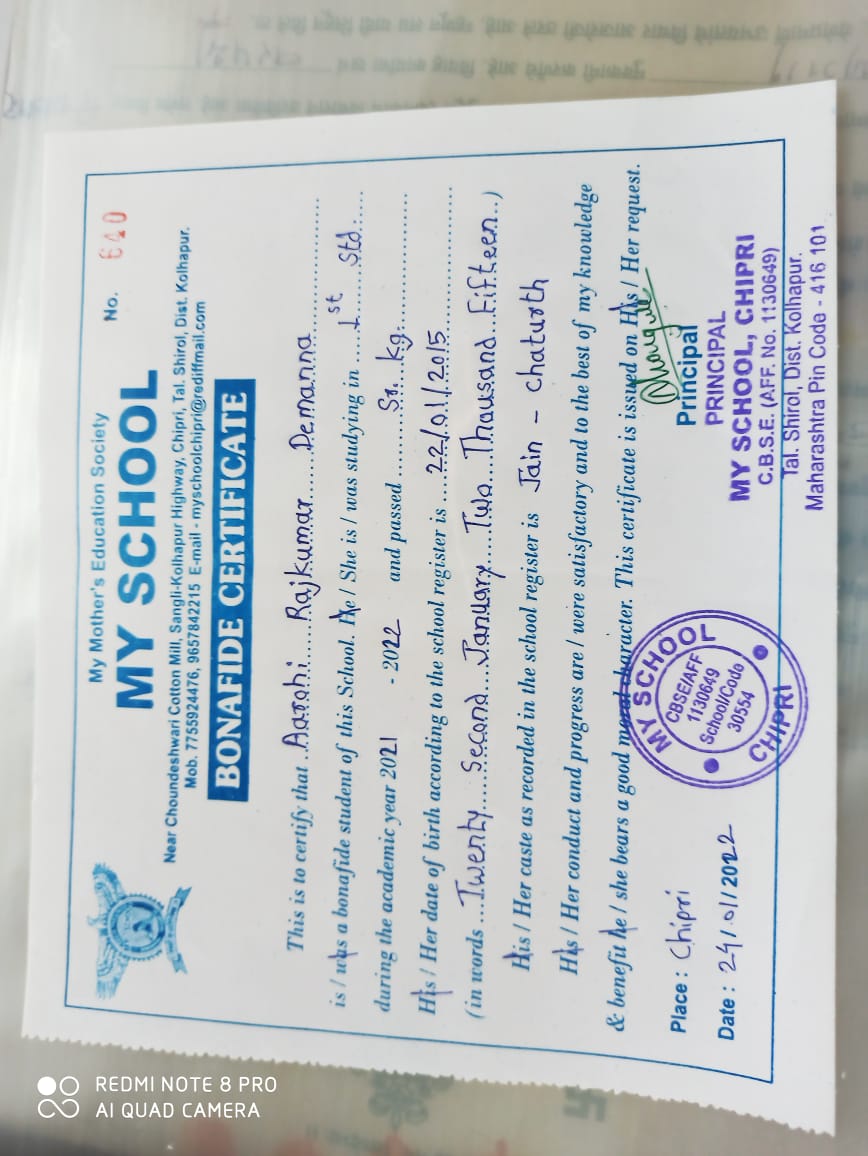 My Mother's Education Society
No. 640
MY SCHOOL
Near Choundeshwari Cotton Mill, Sangli-Kolhapur Highway, Chipri, Tal. Shirol, Dist. Kolhapur.
Mob. 7755924476, 9657842215 E-mail - myschoolchipri@rediffmail.com
BONAFIDE CERTIFICATE
This is to certify that Aarohi Rajkumar Demanna
is / was a bonafide student of this School. He / She is / was studying in 1st Std.
during the academic year 2021 - 2022 and passed Sr. kg.
His / Her date of birth according to the school register is 22/01/2015
(in words Twenty Second January Two Thousand Fifteen)
His / Her caste as recorded in the school register is Jain - Chaturth
His / Her conduct and progress are / were satisfactory and to the best of my knowledge
& benefit he / she bears a good moral character. This certificate is issued on His / Her request.
Place : Chipri
Date : 24/01/2022
MY SCHOOL
CBSE/AFF
1130649
School/Code
30554
CHIPRI
Principal
PRINCIPAL
MY SCHOOL, CHIPRI
C.B.S.E. (AFF. No. 1130649)
Tal. Shirol, Dist. Kolhapur.
Maharashtra Pin Code - 416 101
REDMI NOTE 8 PRO
AI QUAD CAMERA